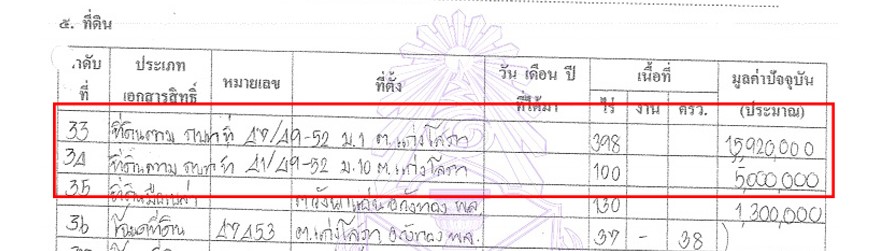 ๕. ที่ดิน
ลำดับ ที่ ประเภท เอกสารสิทธิ์ หมายเลข ที่ตั้ง วัน เดือน ปี ที่ได้มา เนื้อที่ ไร่ งาน ตรว. มูลค่าปัจจุบัน (ประมาณ)
33 ที่ดินตาม ภบท ที่ 47/49-52 ม.1 ต.แก่งโสภา 398 15,920,000
34 ที่ดินตาม ภบท ที่ 41/49-52 ม.10 ต.แก่งโสภา 100 5,000,000
35 130 1,300,000
36 โฉนดที่ดิน 47453 ต.แก่งโสภา อ.วังทอง พล. 37 - 38